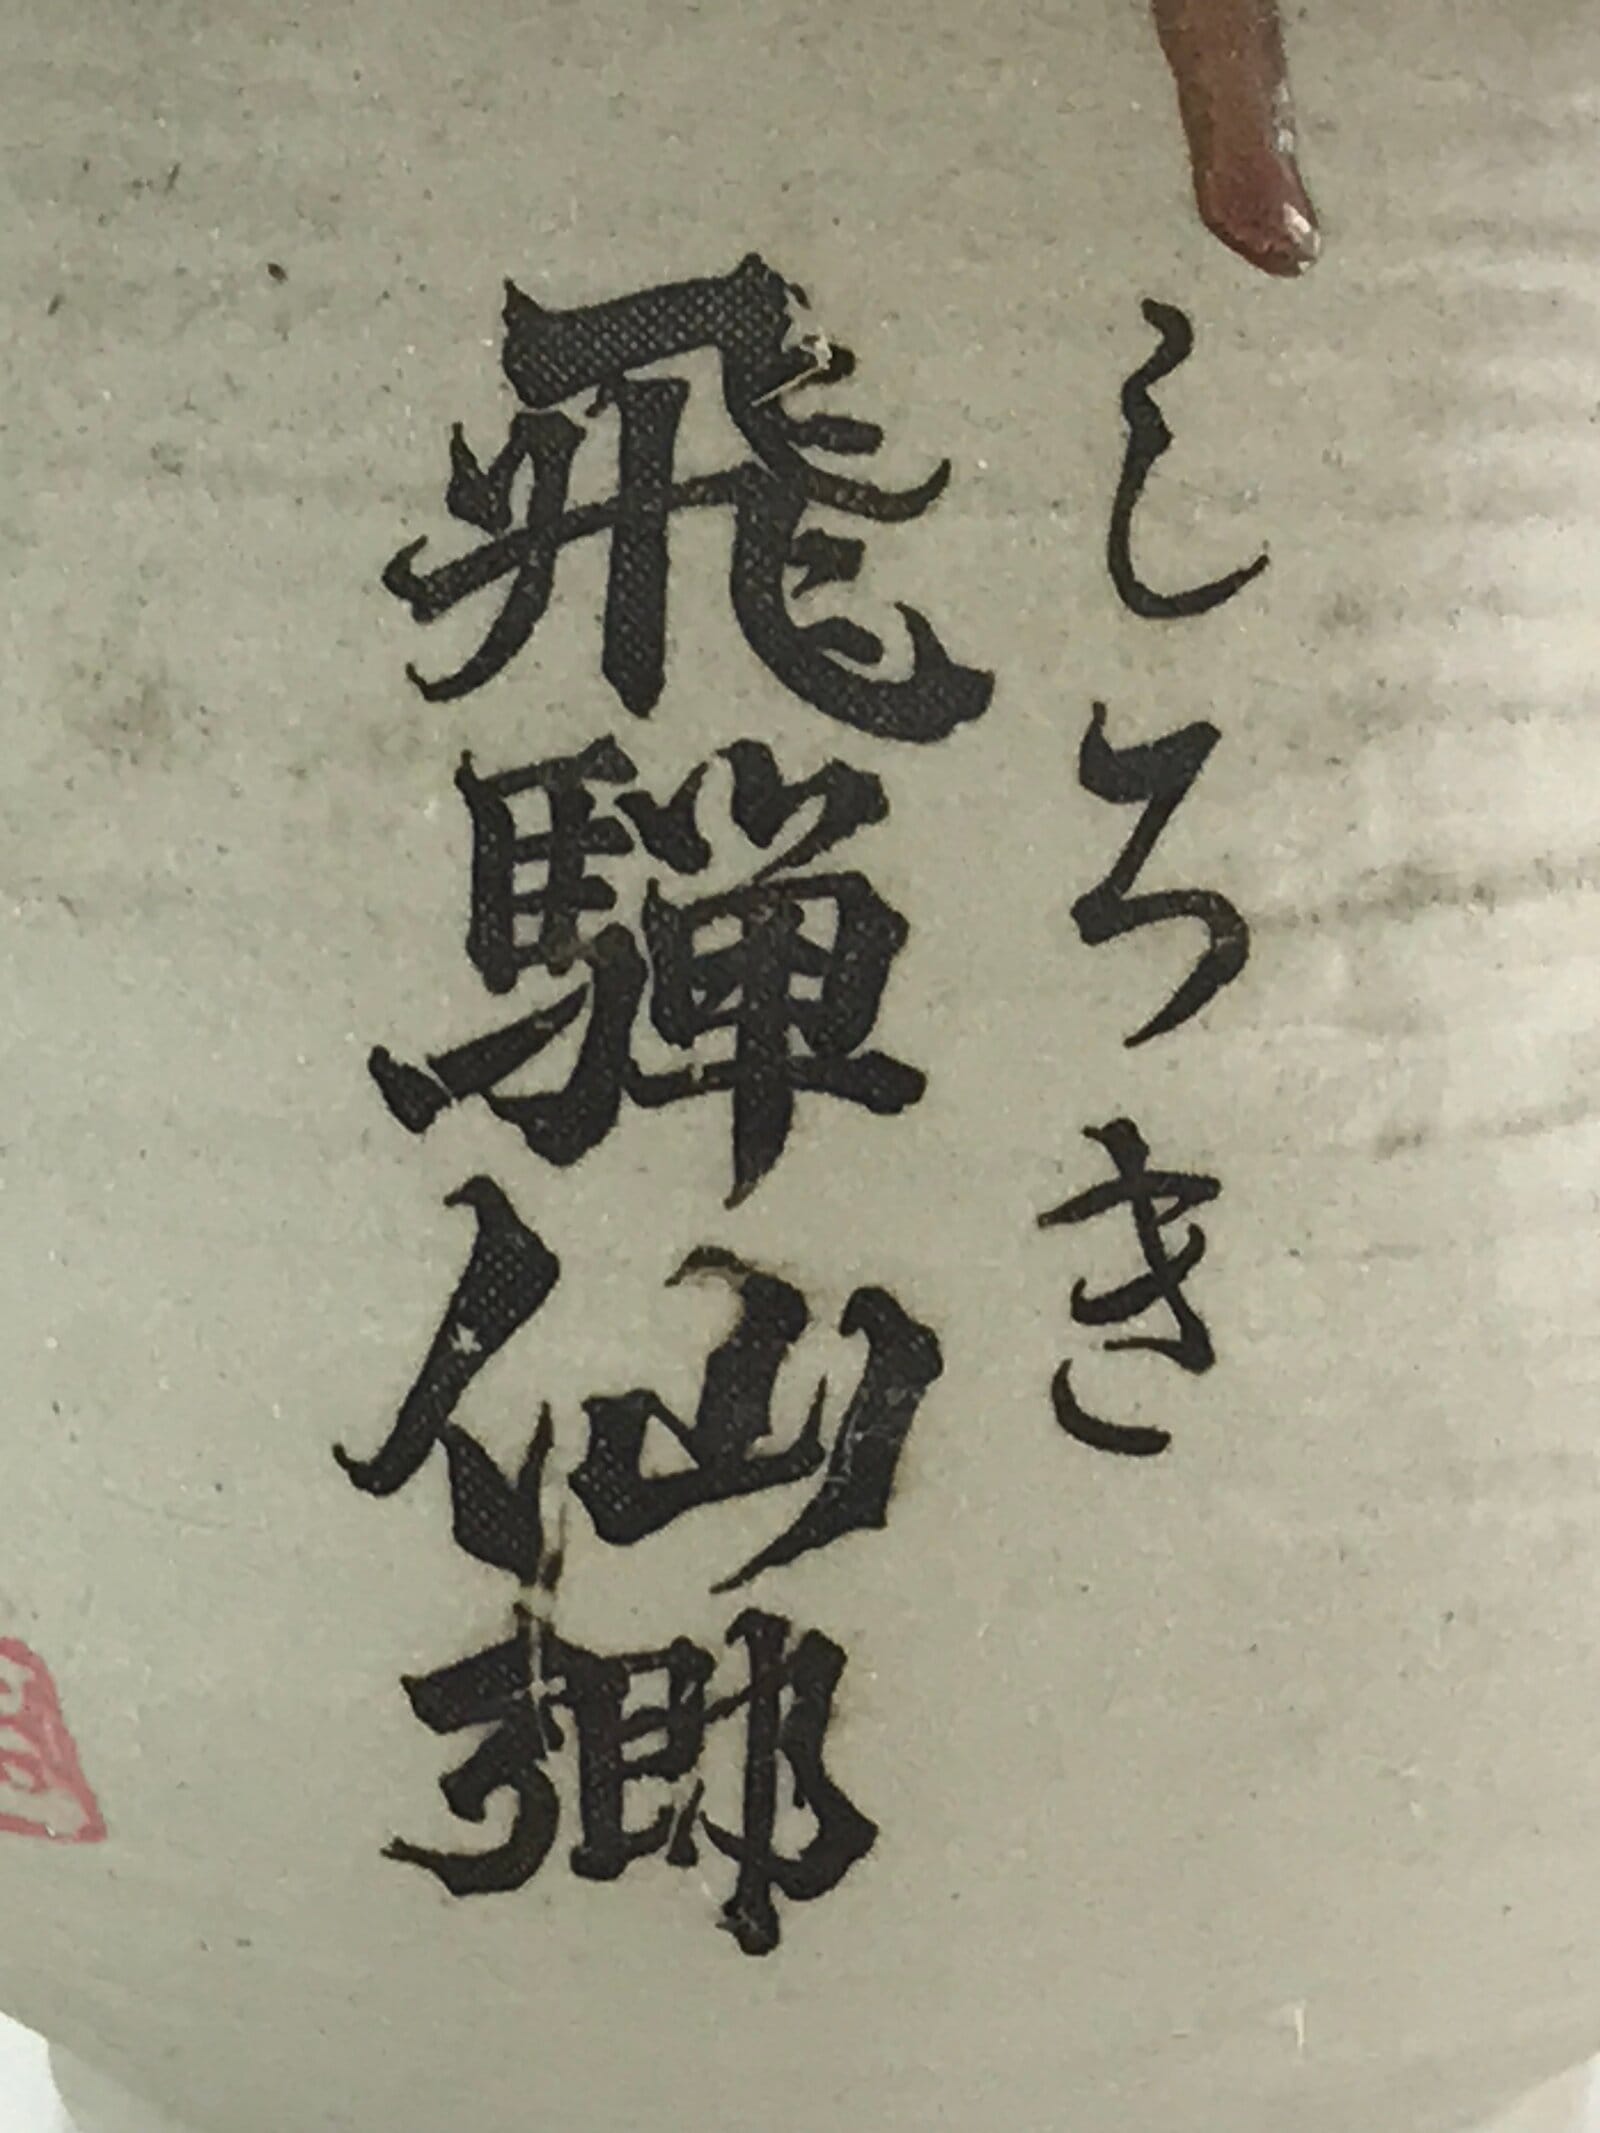 しろき
飛騨仙郷